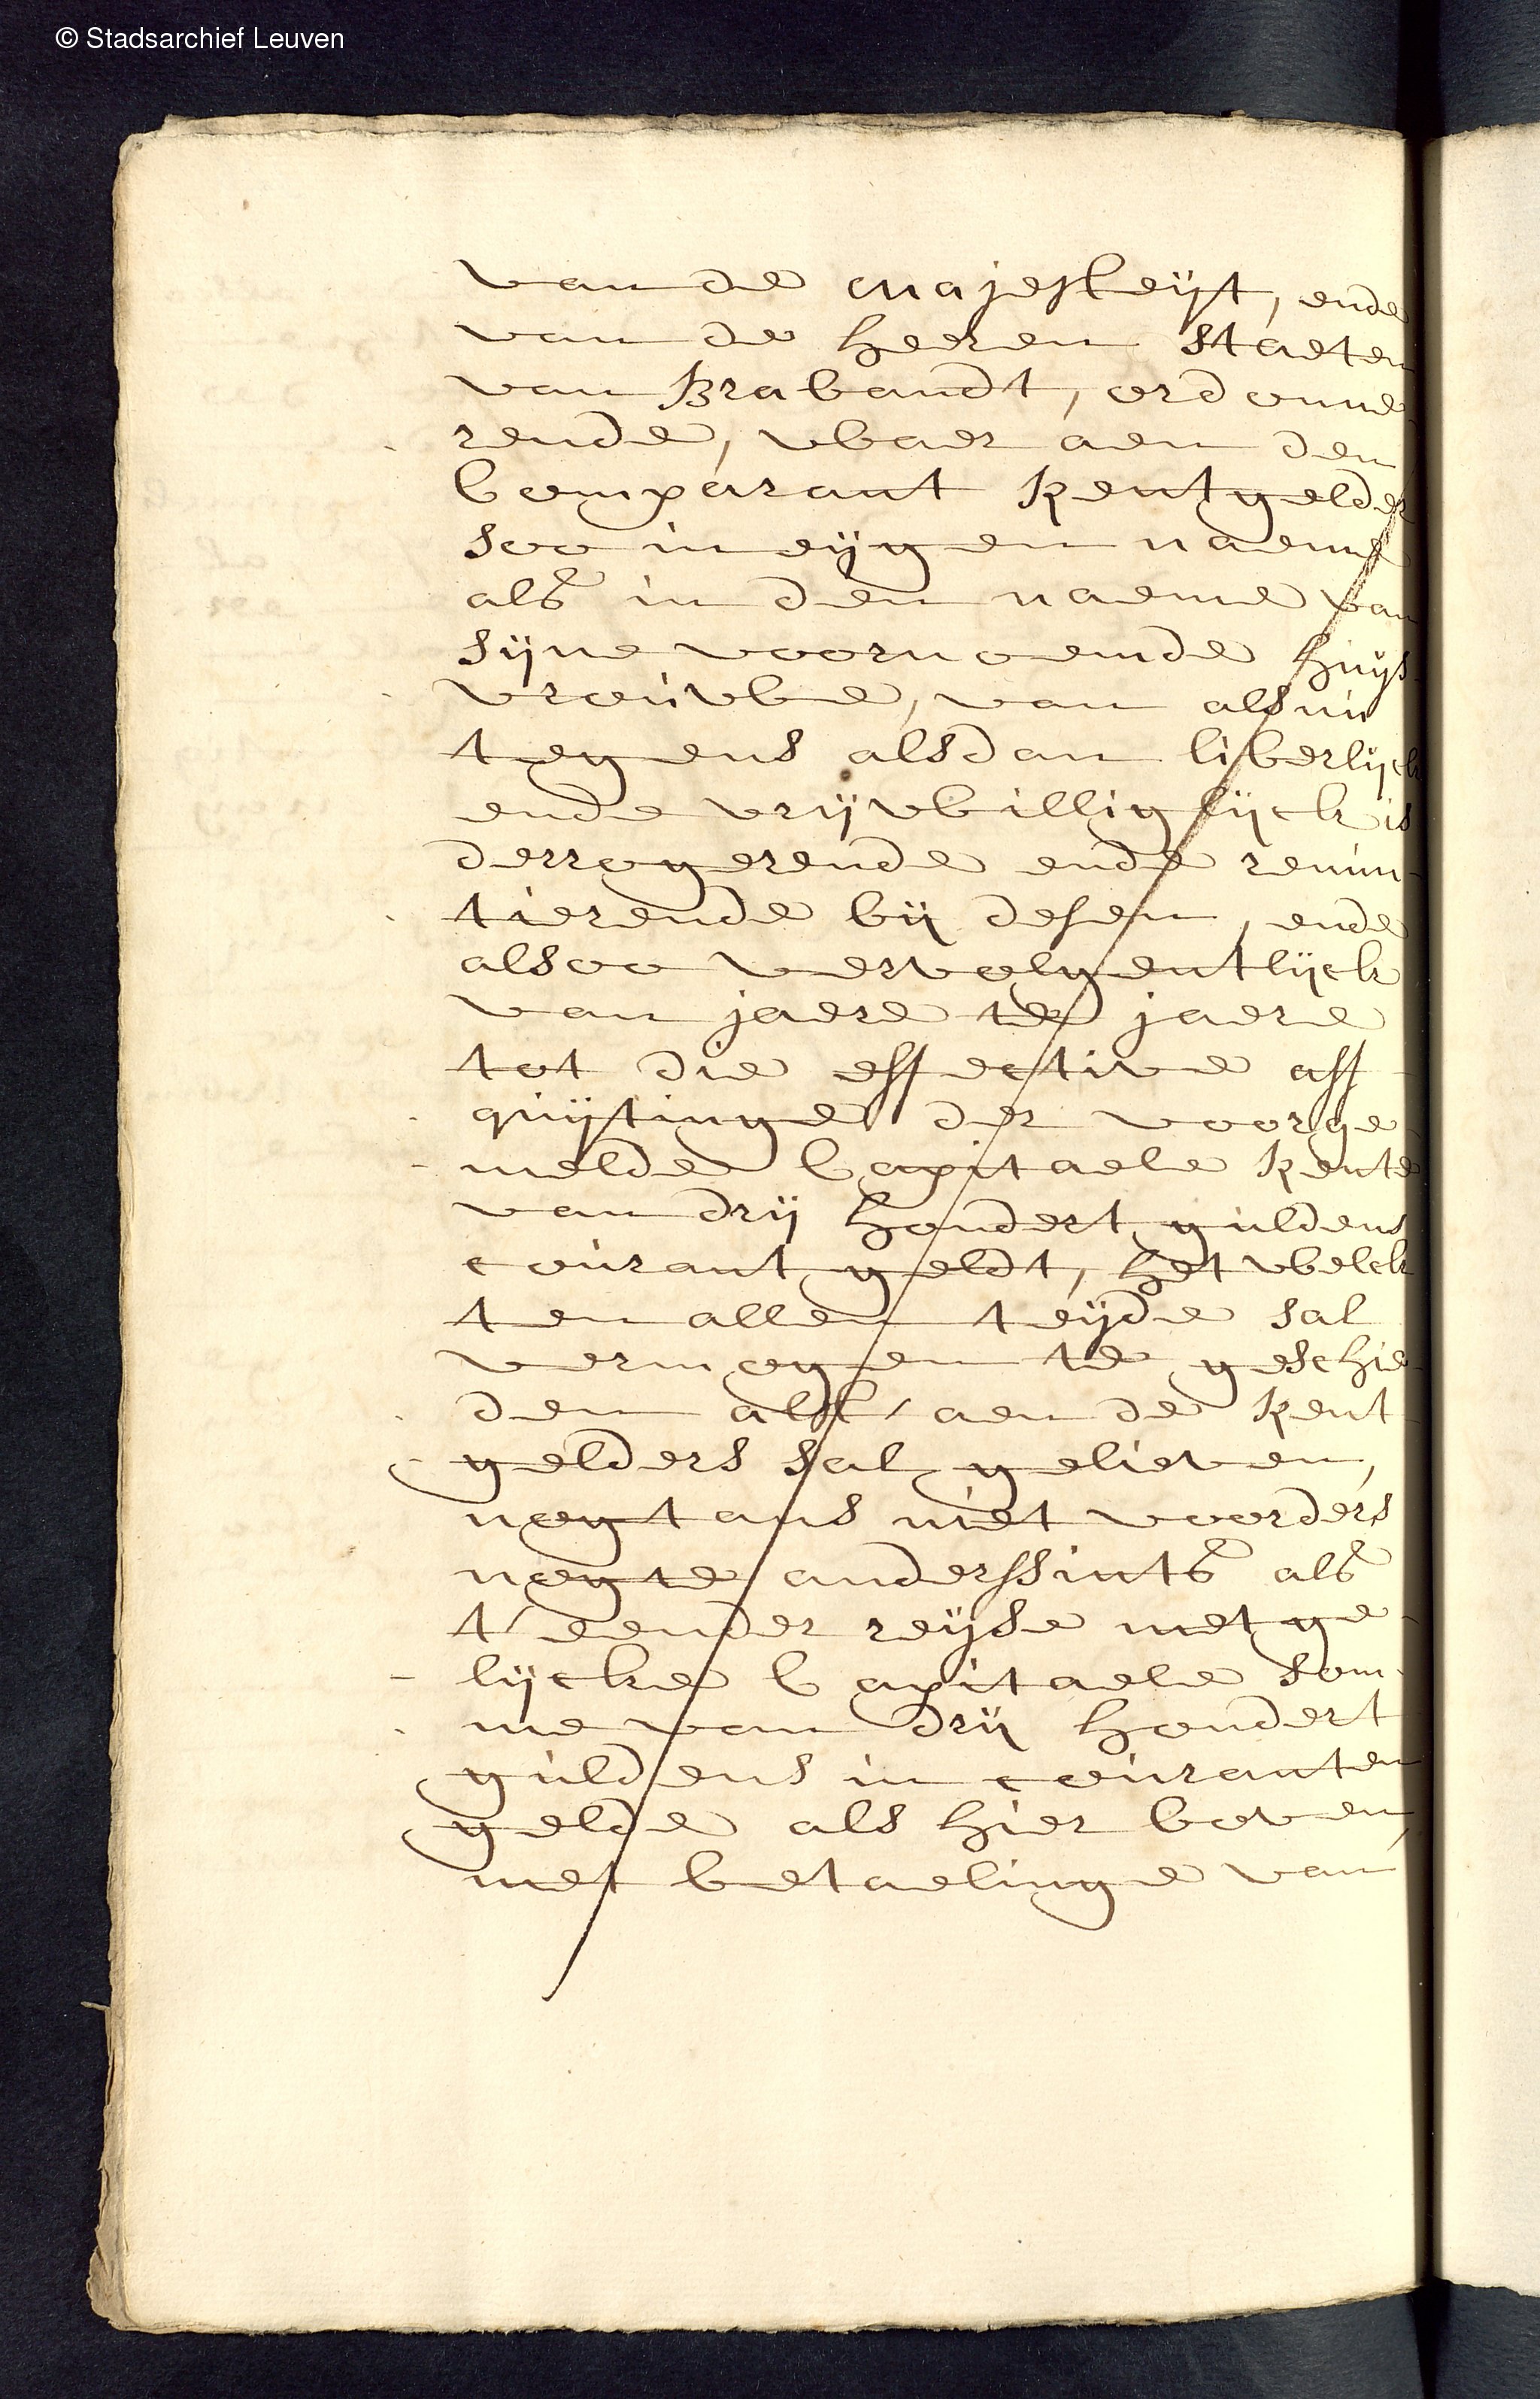 © Stadsarchief Leuven
van de Majesteijt, ende
van de heeren Staeten
van Brabandt, ordonne
rende, waer aen den
Comparant Rentgelder
soo in eijgen naeme
als in den naeme van
sijne voornoemde huijs-
vrouwe, van alsnu
tegens alsdan liberlijck
ende vrijwilliglijck is
derrogerende ende renun-
tierende bij desen, ende
alsoo vervolgentlijck
van jaere te jaere
tot die effective aff
quijtinge der voorge
melde Capitaele Rente
van drij hondert guldens
courant geldt, het welck
ten allen teijde sal
vermogen te geschie
den als 't aen de Rent
gelders sal gelieven,
nogtans niet voorders
nogte anderssints als
t'eender reijse met ge-
lijcke Capitaele som-
me van drij hondert
guldens in couranten
gelde als hier boven,
met betaelinge van